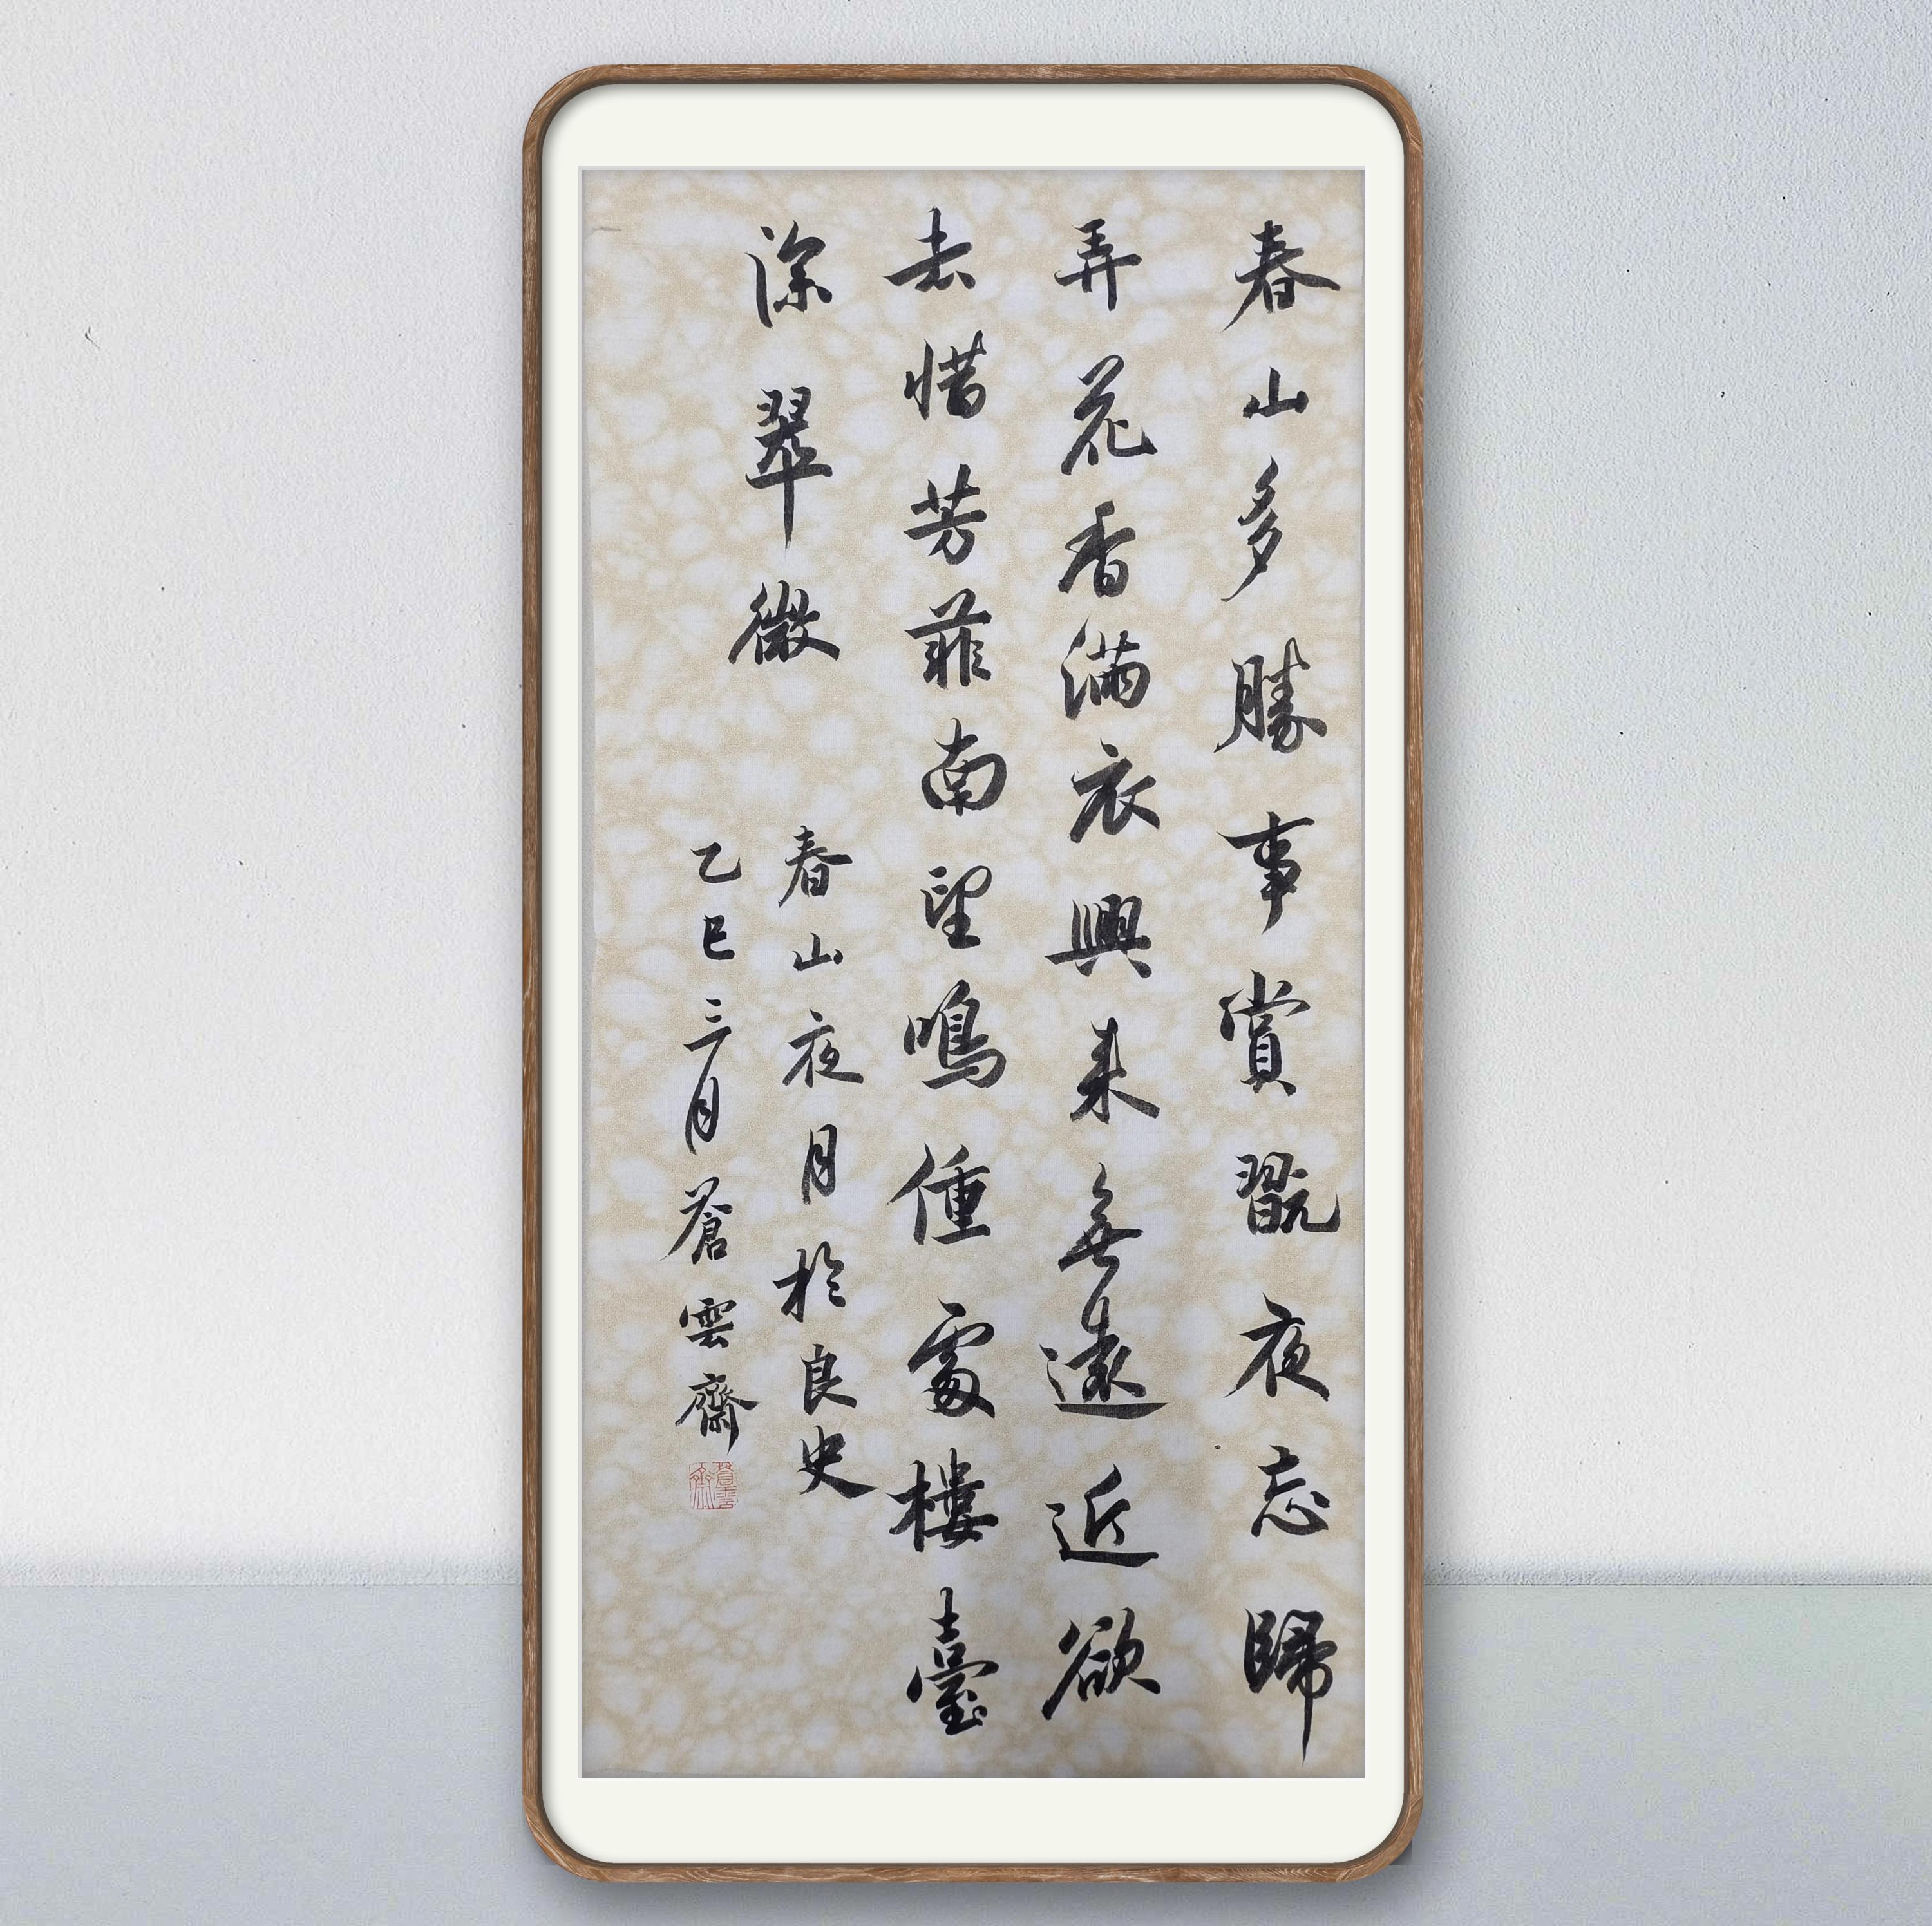 春山多勝事賞翫夜忘歸
弄花香滿衣興來無遠近欲
去惜芳菲南望鳴鍾處樓臺
深翠微
春山夜月於良史
乙巳三月蒼雲齋
蒼雲齋